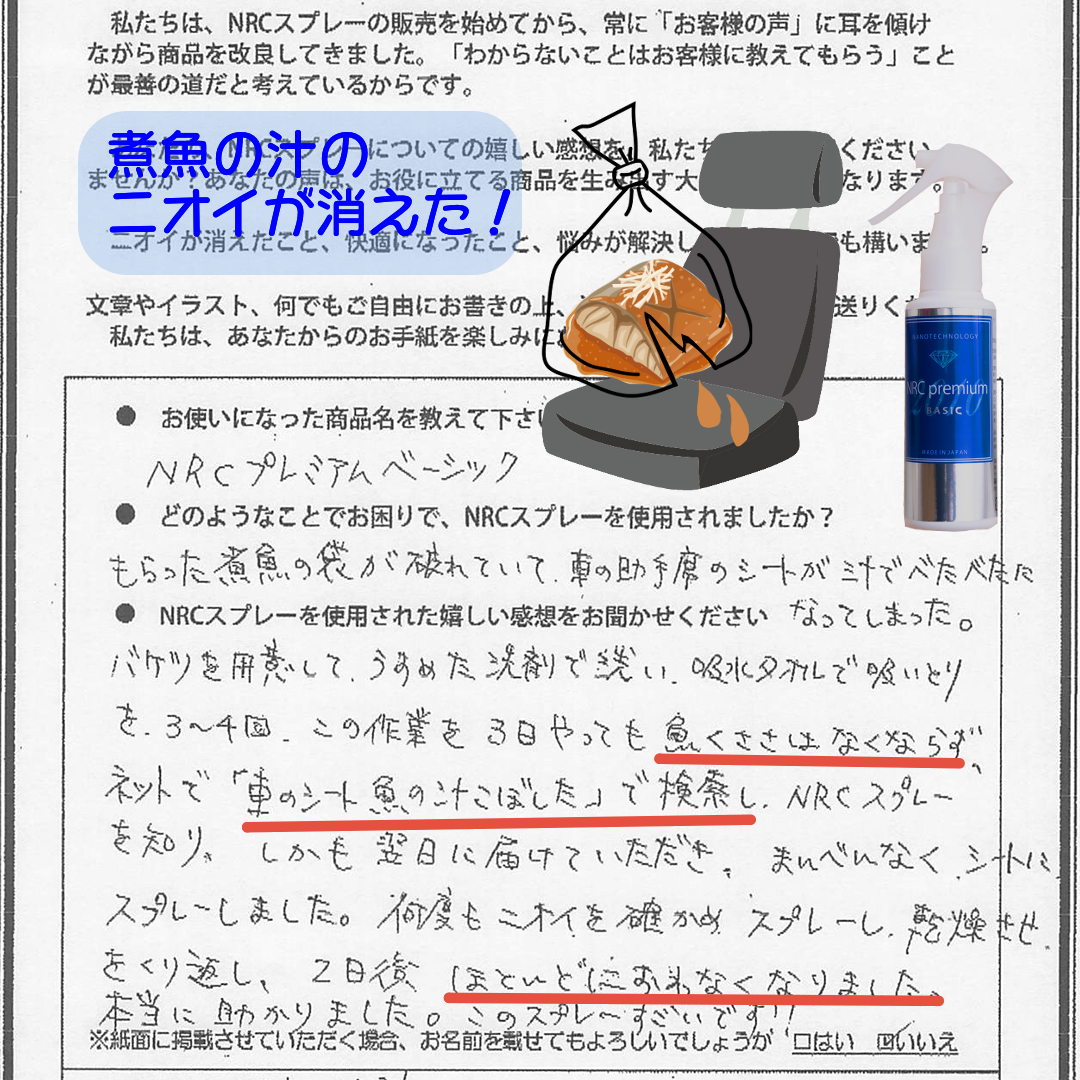 私たちは、NRCスプレーの販売を始めてから、常に「お客様の声」に耳を傾け
ながら商品を改良してきました。「わからないことはお客様に教えてもらう」こと
が最善の道だと考えているからです。
煮魚の汁の
ニオイが消えた！
NRCスプレーについての嬉しい感想を、私たち ください
ませんか？あなたの声は、お役に立てる商品を生み出す大 なります。
ニオイが消えたこと、快適になったこと、悩みが解決し でも構いま 。
文章やイラスト、何でもご自由にお書きの上、 送りくだ
私たちは、あなたからのお手紙を楽しみに
NANOTECHNOLOGY
NRC premium
BASIC
MADE IN JAPAN
● お使いになった商品名を教えて下さい
NRCプレミアムベーシック
● どのようなことでお困りで、NRCスプレーを使用されましたか？
もらった煮魚の袋が破れていて、車の助手席のシートが汁でべたべたに
なってしまった。
● NRCスプレーを使用された嬉しい感想をお聞かせください
バケツを用意して、うすめた洗剤で洗い、吸水タオルで吸いとり
を、3〜4回、この作業を3日やっても魚くささはなくならず、
ネットで「車のシート魚の汁こぼした」で検索し、NRCスプレー
を知り、しかも翌日に届けていただき、まんべんなく、シートに
スプレーしました。何度もニオイを確かめ スプレーし、乾燥させ、
をくり返し、2日後 ほとんどにおわなくなりました。
本当に助かりました。このスプレーすごいです!!
※紙面に掲載させていただく場合、お名前を載せてもよろしいでしょうか □はい ☑いいえ